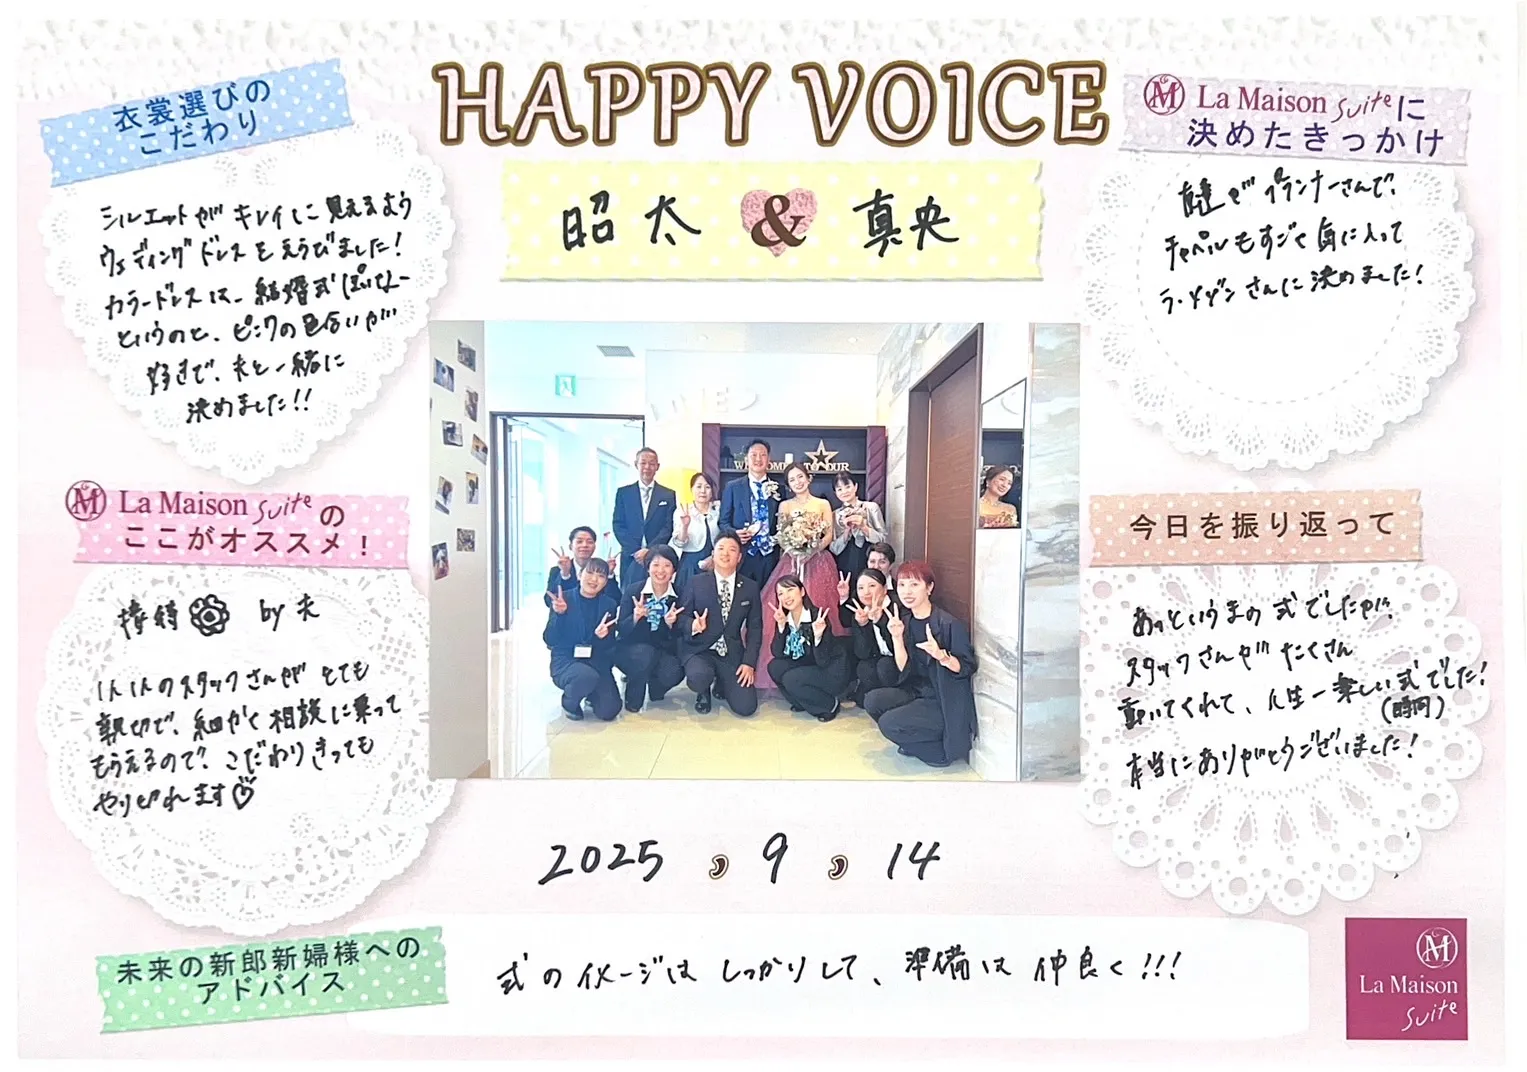 HAPPY VOICE
昭太 & 真央
衣裳選びの
こだわり
シルエットがキレイに見えるよう
ウェディングドレスをえらびました!
カラードレスは、結婚式ぽいなー
というのと、ピンクの色合いが
好きで、夫と一緒に
決めました!!
M La Maison suiteに
決めたきっかけ
友達がプランナーさんで、
チャペルもすごく気に入って
ラ・メゾンさんに決めました!
M La Maison suiteの
ここがオススメ!
接待 by 夫
1人1人のスタッフさんがとても
親切で、細かく相談に乗って
もらえるので、こだわりきっても
やりとれます♡
LOVE
WELCOME TO OUR
今日を振り返って
あっというまの式でしたが、
スタッフさんがたくさん
動いてくれて、人生一楽しい式でした!
(時間)
本当にありがとうございました!
2025, 9, 14
未来の新郎新婦様への
アドバイス
式のイメージはしっかりして、準備は仲良く!!!
M
La Maison
suite